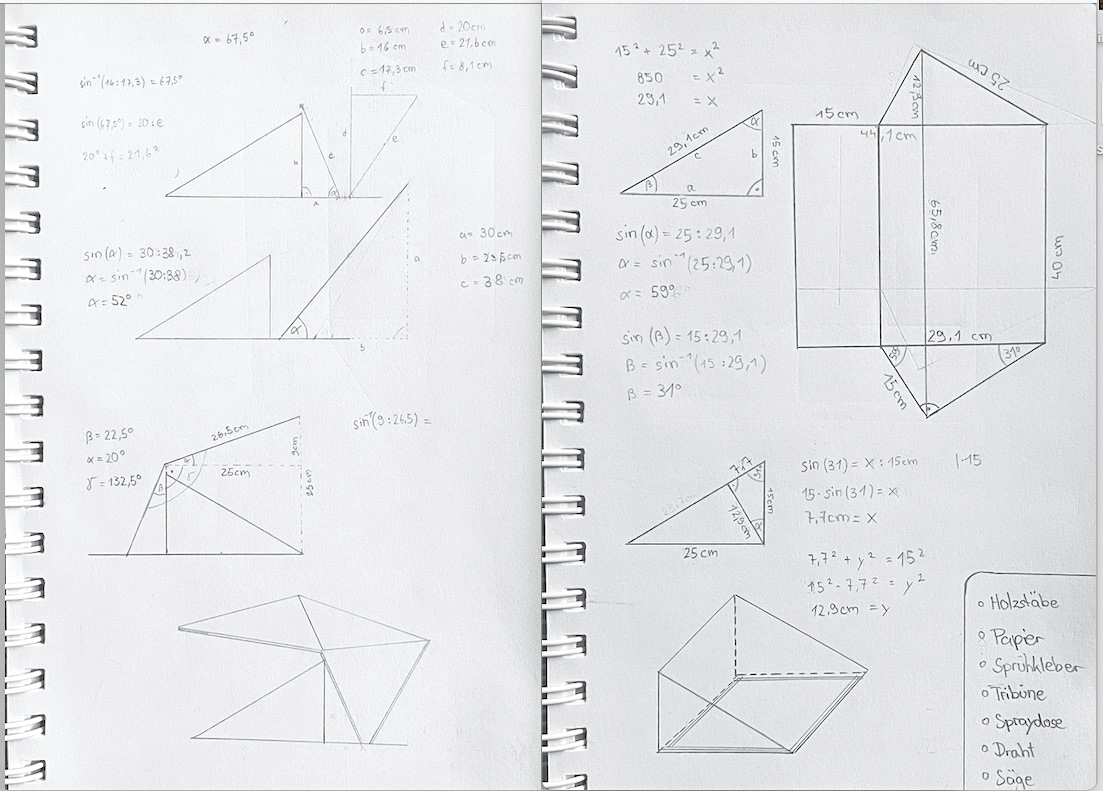 α = 67,5°
a = 6,5 cm
b = 16 cm
c = 17,3 cm
d = 20cm
e = 21,6 cm
f = 8,1 cm
sin⁻¹(16:17,3) = 67,5°
sin(67,5°) = 20:e
20² + f = 21,6²
f
d
e
b
c
a
α
sin(α) = 30:38,2
α = sin⁻¹(30:38)
α = 52°
a = 30 cm
c = 38 cm
a
α
b
β = 22,5°
α = 20°
γ = 132,5°
sin⁻¹(9:26,5) =
26,5cm
9cm
25cm
25cm
α
γ
β
15² + 25² = x²
850 = x²
29,1 = x
29,1cm
c
α
b
15 cm
β
a
25 cm
sin(α) = 25:29,1
α = sin⁻¹(25:29,1)
α = 59°
sin(β) = 15:29,1
β = sin⁻¹(15:29,1)
β = 31°
25 cm
12,9cm
15 cm
44,1cm
65,8cm
40 cm
29,1 cm
31°
15cm
7,7
15cm
12,9cm
α
25 cm
sin(31) = x:15cm |·15
15·sin(31) = x
7,7cm = x
7,7² + y² = 15²
15² - 7,7² = y²
12,9cm = y
o Holzstäbe
o Papier
o Sprühkleber
o Tribüne
o Spraydose
o Draht
o Säge